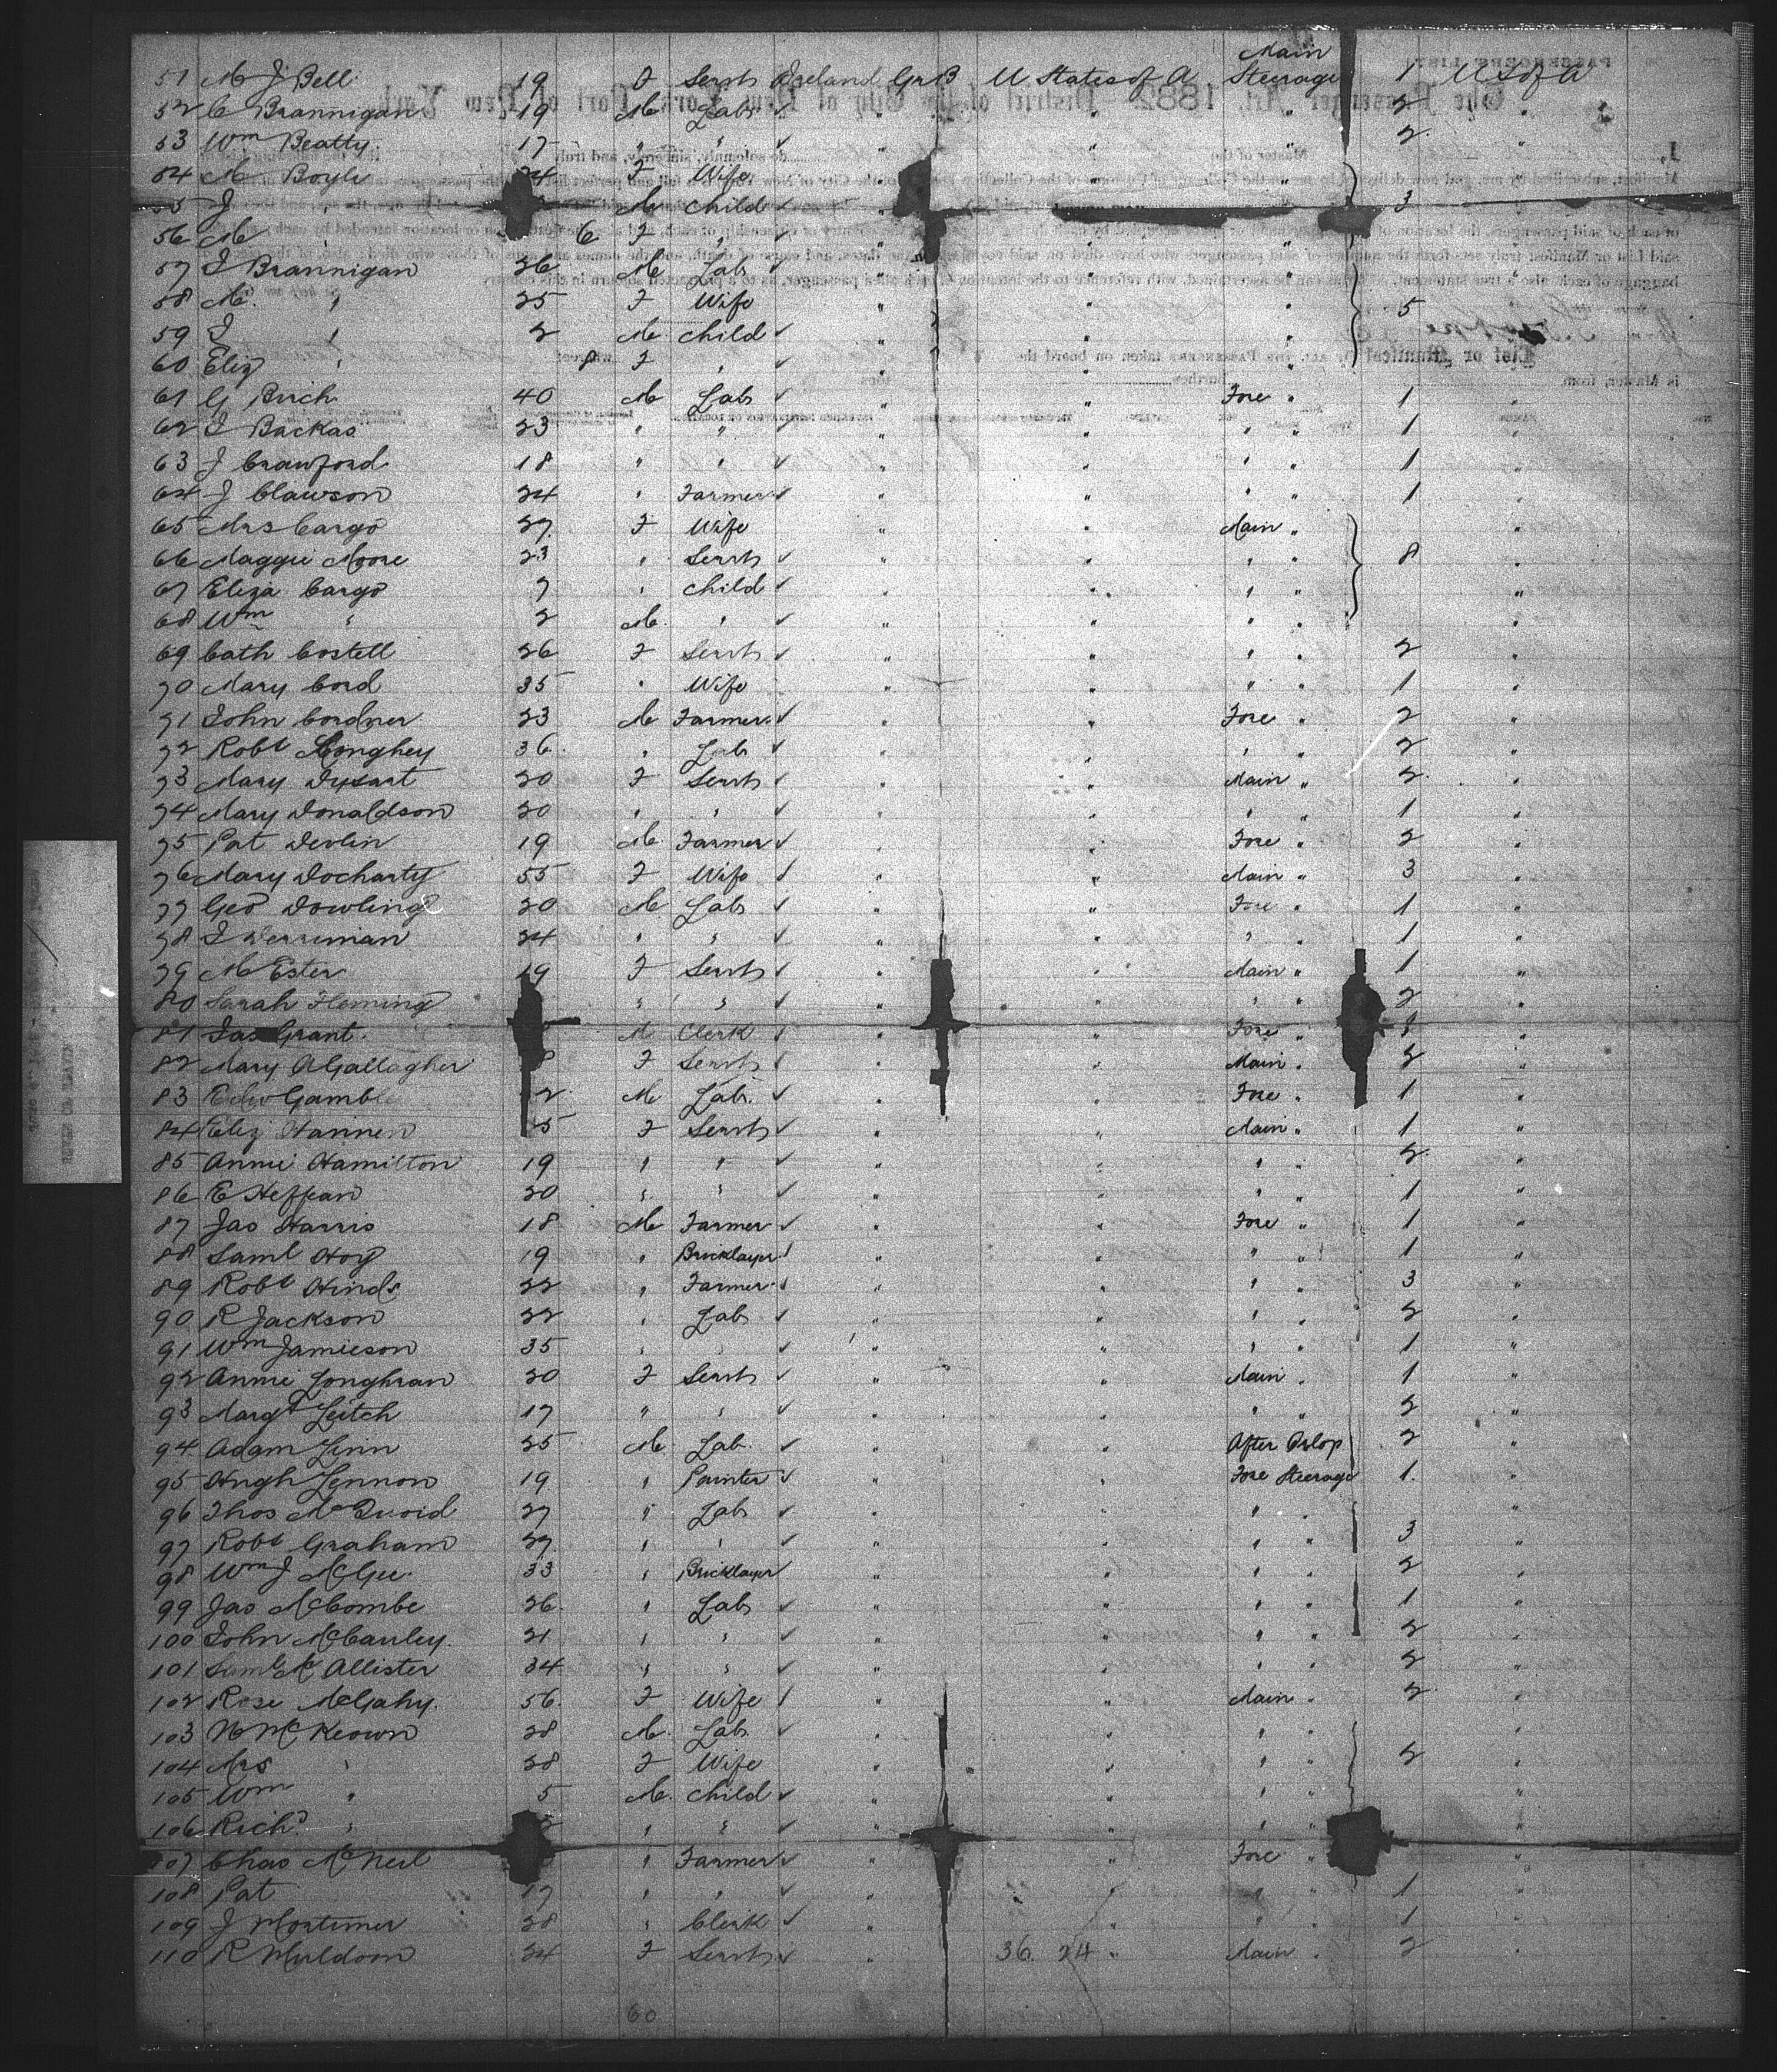 Main
51 M J Bell 19 F Servt Ireland Gr B U States of A Steerage 1 U S of A
52 C Brannigan 19 M Labr " " " 2 "
53 Wm Beatty 17 " " " " " 2 "
54 M Boyle 24 F Wife " " "
55 J " M Child " 3
56 M " 6 F " " " "
57 J Brannigan 26 M Labr " " " "
58 M " 25 F Wife " " " 5
59 J " 2 M Child " " "
60 Eliz " 8 F " " " "
61 G Birch 40 M Labr " " Fore " 1 "
62 J Backas 23 " " " " " " 1 "
63 J Crawford 18 " " " " " " 1 "
64 J Clawson 24 " Farmer " " " " 1 "
65 Mrs Cargo 27 F Wife " " Main " "
66 Maggie Moore 23 " Servt " " " " 8 "
67 Eliza Cargo 7 " Child " " " " "
68 Wm " 2 M " " " " " "
69 Cath Costell 26 F Servt " " " " 2 "
70 Mary Cord 35 " Wife " " " " 1 "
71 John Cordner 23 M Farmer " " Fore " 2 "
72 Robt 36 " Labr " " " " 2 "
73 Mary Dysart 20 F Servt " " Main " 2 "
74 Mary Donaldson 20 " " " " " " 1 "
75 Pat Devlin 19 M Farmer " " Fore " 2 "
76 Mary Docharty 55 F Wife " " Main " 3 "
77 Geo Dowling 20 M Labr " " Fore " 1 "
78 J Derriman 24 " " " " " " 1 "
79 M Ester 19 F Servt " " Main " 1 "
80 Sarah Fleming " " " " " " 2 "
81 Jas Grant M Clerk " " Fore " "
82 Mary A Gallagher F Servt " " Main " 2 "
83 Edw Gamble 2 M Labr " " Fore " 1 "
84 Eliz Hannen 5 F Servt " " Main " 1 "
85 Annie Hamilton 19 " " " " " " 2 "
86 E Heffean 20 " " " " " " 1 "
87 Jas Harris 18 M Farmer " " Fore " 1 "
88 Saml Hoy 19 " Bricklayer " " " " 1 "
89 Robt Hinds 22 " Farmer " " " " 3 "
90 R Jackson 22 " Labr " " " " 2 "
91 Wm Jamieson 35 " " " " " " 1 "
92 Annie Loughran 20 F Servt " " Main " 1 "
93 Margt Leitch 17 " " " " " " 2 "
94 Adam Linn 25 M Lab " " After Orlop 2 "
95 Hugh Lennon 19 " Painter " " Fore Steerage 1 "
96 Thos McQuoid 27 " Labr " " " " "
97 Robt Graham 27 " " " " " " 3 "
98 Wm J McGee 33 " Bricklayer " " " " 2 "
99 Jas McCombe 26 " Labr " " " " 1 "
100 John McCauley 21 " " " " " " 2 "
101 Saml McAllister 34 " " " " " " 2 "
102 Rose McGahy 56 F Wife " " Main " 2 "
103 N McKeown 28 M Labr " " " " "
104 Mrs " 28 F Wife " " " " 2 "
105 Wm " 5 M Child " " " " "
106 Richd " " " " " " " "
107 Chas McNeil " Farmer " " Fore " "
108 Pat 17 " " " " " " 1 "
109 J Mortimer 28 " Clerk " " " " 1 "
110 R Muldoon 24 F Servt " 36 24 " Main " 2 "
60